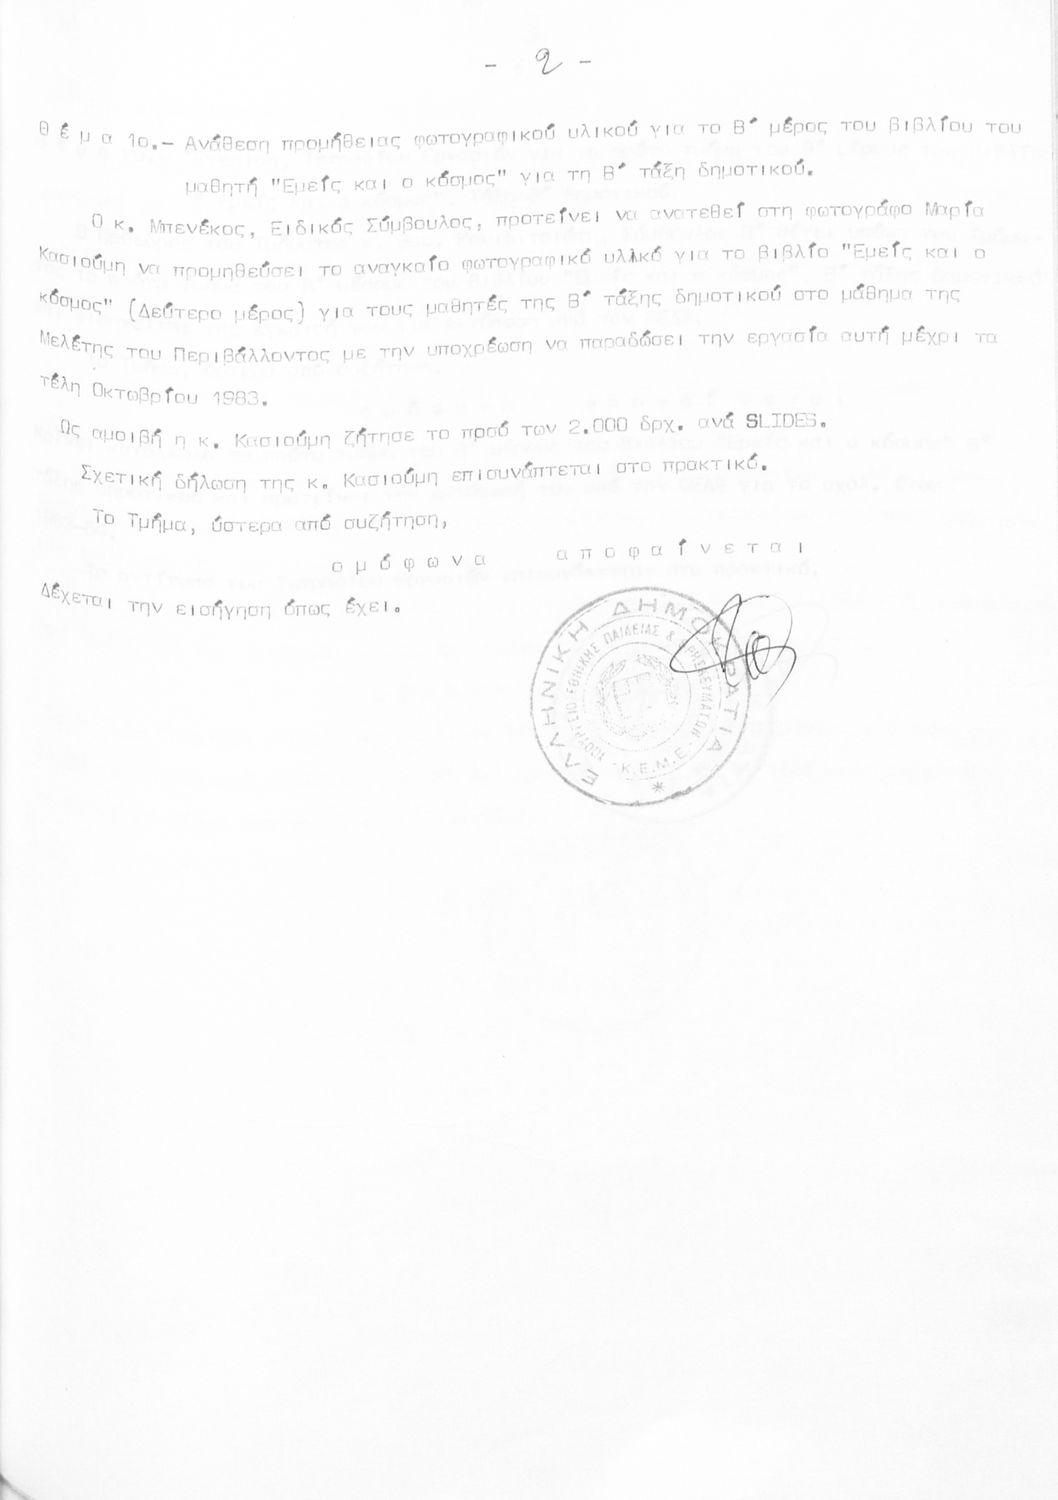 - 2 -
Θ έ μ α 1ο.- Ανάθεση προμήθειας φωτογραφικού υλικού για το Β΄ μέρος του βιβλίου του
μαθητή "Εμείς και ο κόσμος" για τη Β΄ τάξη δημοτικού.
Ο κ. Μπενέκος, Ειδικός Σύμβουλος, προτείνει να ανατεθεί στη φωτογράφο Μαρία
Κασιούμη να προμηθεύσει το αναγκαίο φωτογραφικό υλικό για το βιβλίο "Εμείς και ο
κόσμος" (Δεύτερο μέρος) για τους μαθητές της Β΄ τάξης δημοτικού στο μάθημα της
Μελέτης του Περιβάλλοντος με την υποχρέωση να παραδώσει την εργασία αυτή μέχρι τα
τέλη Οκτωβρίου 1983.
Ως αμοιβή η κ. Κασιούμη ζήτησε το ποσό των 2.000 δρχ. ανά SLIDES.
Σχετική δήλωση της κ. Κασιούμη επισυνάπτεται στο πρακτικό.
Το Τμήμα, ύστερα από συζήτηση,
ο μ ό φ ω ν α α π ο φ α ί ν ε τ α ι
Δέχεται την εισήγηση όπως έχει.
ΕΛΛΗΝΙΚΗ ΔΗΜΟΚΡΑΤΙΑ
ΥΠΟΥΡΓΕΙΟ ΕΘΝΙΚΗΣ ΠΑΙΔΕΙΑΣ & ΘΡΗΣΚΕΥΜΑΤΩΝ
- Κ.Ε.Μ.Ε. -